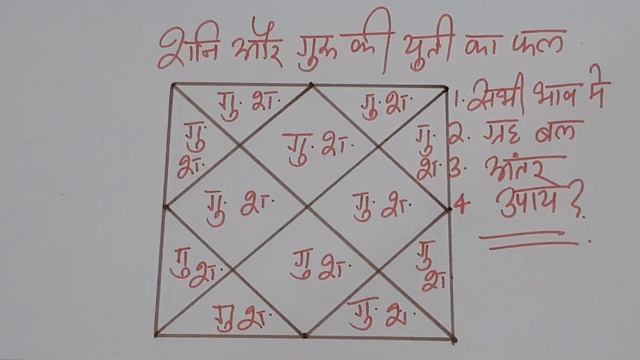 शनि और गुरु की युती का फल
गु. श. गु. श. 1. सभी भाव मे
गु श. गु. श. गु. श. 2. ग्रह बल
3. अंतर
गु. श. गु. श. 4 उपाय ?
गु श. गु श. गु श.
गु श. गु. श.